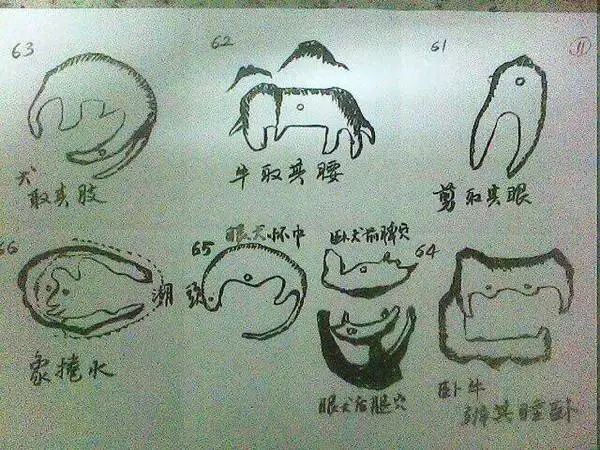 63
62
61
11
犬
取其肢
牛取其腰
剪取其眼
66
65
眼犬怀中
卧犬前脾穴
64
潮
象掩水
眼犬后腿穴
卧牛
辨其睡卧